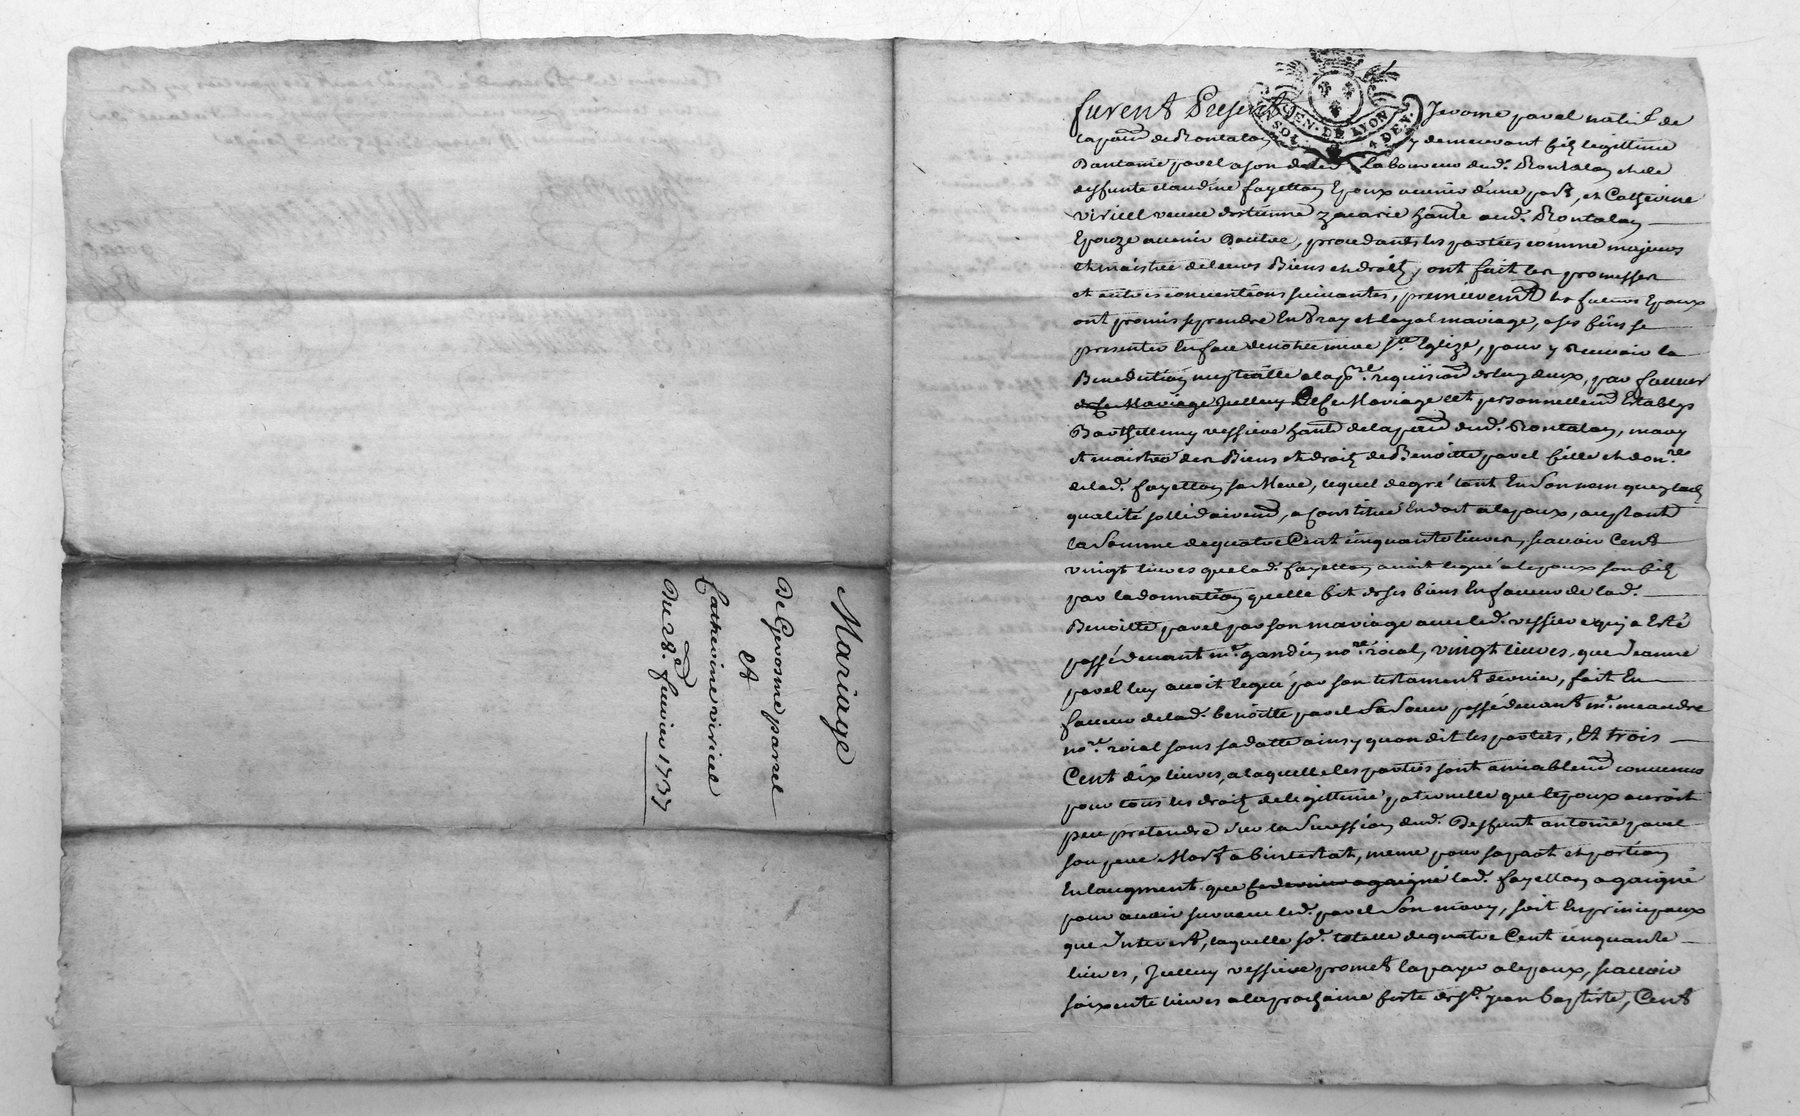 Mariage
De Gerosme parrel
et
Catherine viricel
Du 28.e fevrier 1737
GEN. DE LYON
SOL. 4 DEN.
furent Presents Jerome pavel natif de
la parr. de Rontalon y demeurant filz legittime
Dantoine pavel a son deced laboureur dud. Rontalon et de
deffunte claudine fayellon Epoux avenir d'une part, et Catherine
viricel veuve destienne zacarie hante aud. Rontalon
Epouze avenir Dautre, procedants les parties comme majeurs
et maistre de leurs Biens et droitz, ont fait les promesses
et autres conventions suivantes, premierem.t les futurs Epoux
ont promis se prendre En vray et loyal mariage, a ses fins se
presenter En face de notre mere s.te Eglize, pour y Recevoir la
Benediction nuptialle a la p.re requision de lun deux, par faveur
de Ce Mariage Jcelluy De Ce Mariage cest personnellem.t Establys
Barthellemy vessiere hant. de la parr. dud. Rontalon, mary
et maistre des Biens et droitz de Benoitte pavel fille et don.re
de lad. fayellon sa Mere, lequel de gré tant En son nom quen lad.
qualité sollidairem.t, a Constitué En dot a lepoux, acceptant
la Somme de quatre Cent cinquante livres, scavoir Cent
vingt livres que lad. fayellon avoit legué a lepoux son filz
par la donnation quelle fit de ses biens En faveur de lad.
Benoitte pavel par son mariage avec led. vessiere qui a Esté
passé devant m.e gandin no.re roial, vingt livres, que Jeanne
pavel luy avoit legué par son testament dernier, fait En
faveur de lad. benoitte pavel Sa Soeur passé devant m.e meandre
no.re roial sans sa datte ainsy quon dit les parties, Et trois
Cent dix livres, a laquelle les parties sont amiablem.t convenus
pour tous les droitz de legittime paternelle que lepoux auroit
peu pretendre sur la Succession dud. Deffunt antoine pavel
son pere Mort abintestat, meme pour sa part et portion
En laugment que Ce dernier a gaigné lad. fayellon a gaigné
pour avoir survecu led. pavel Son mary, soit En principaux
que Interest, laquelle so.e totalle de quatre Cent cinquante
livres, Jcelluy vessiere promet la payer a lepoux, scavoir
soixente livres a la prochaine feste de s.t jean baptiste, Cent